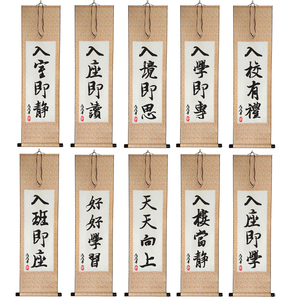 入室即靜
入座即讀
入境即思
入學即專
入校有禮
入班即座
好好學習
天天向上
入樓當靜
入座即學